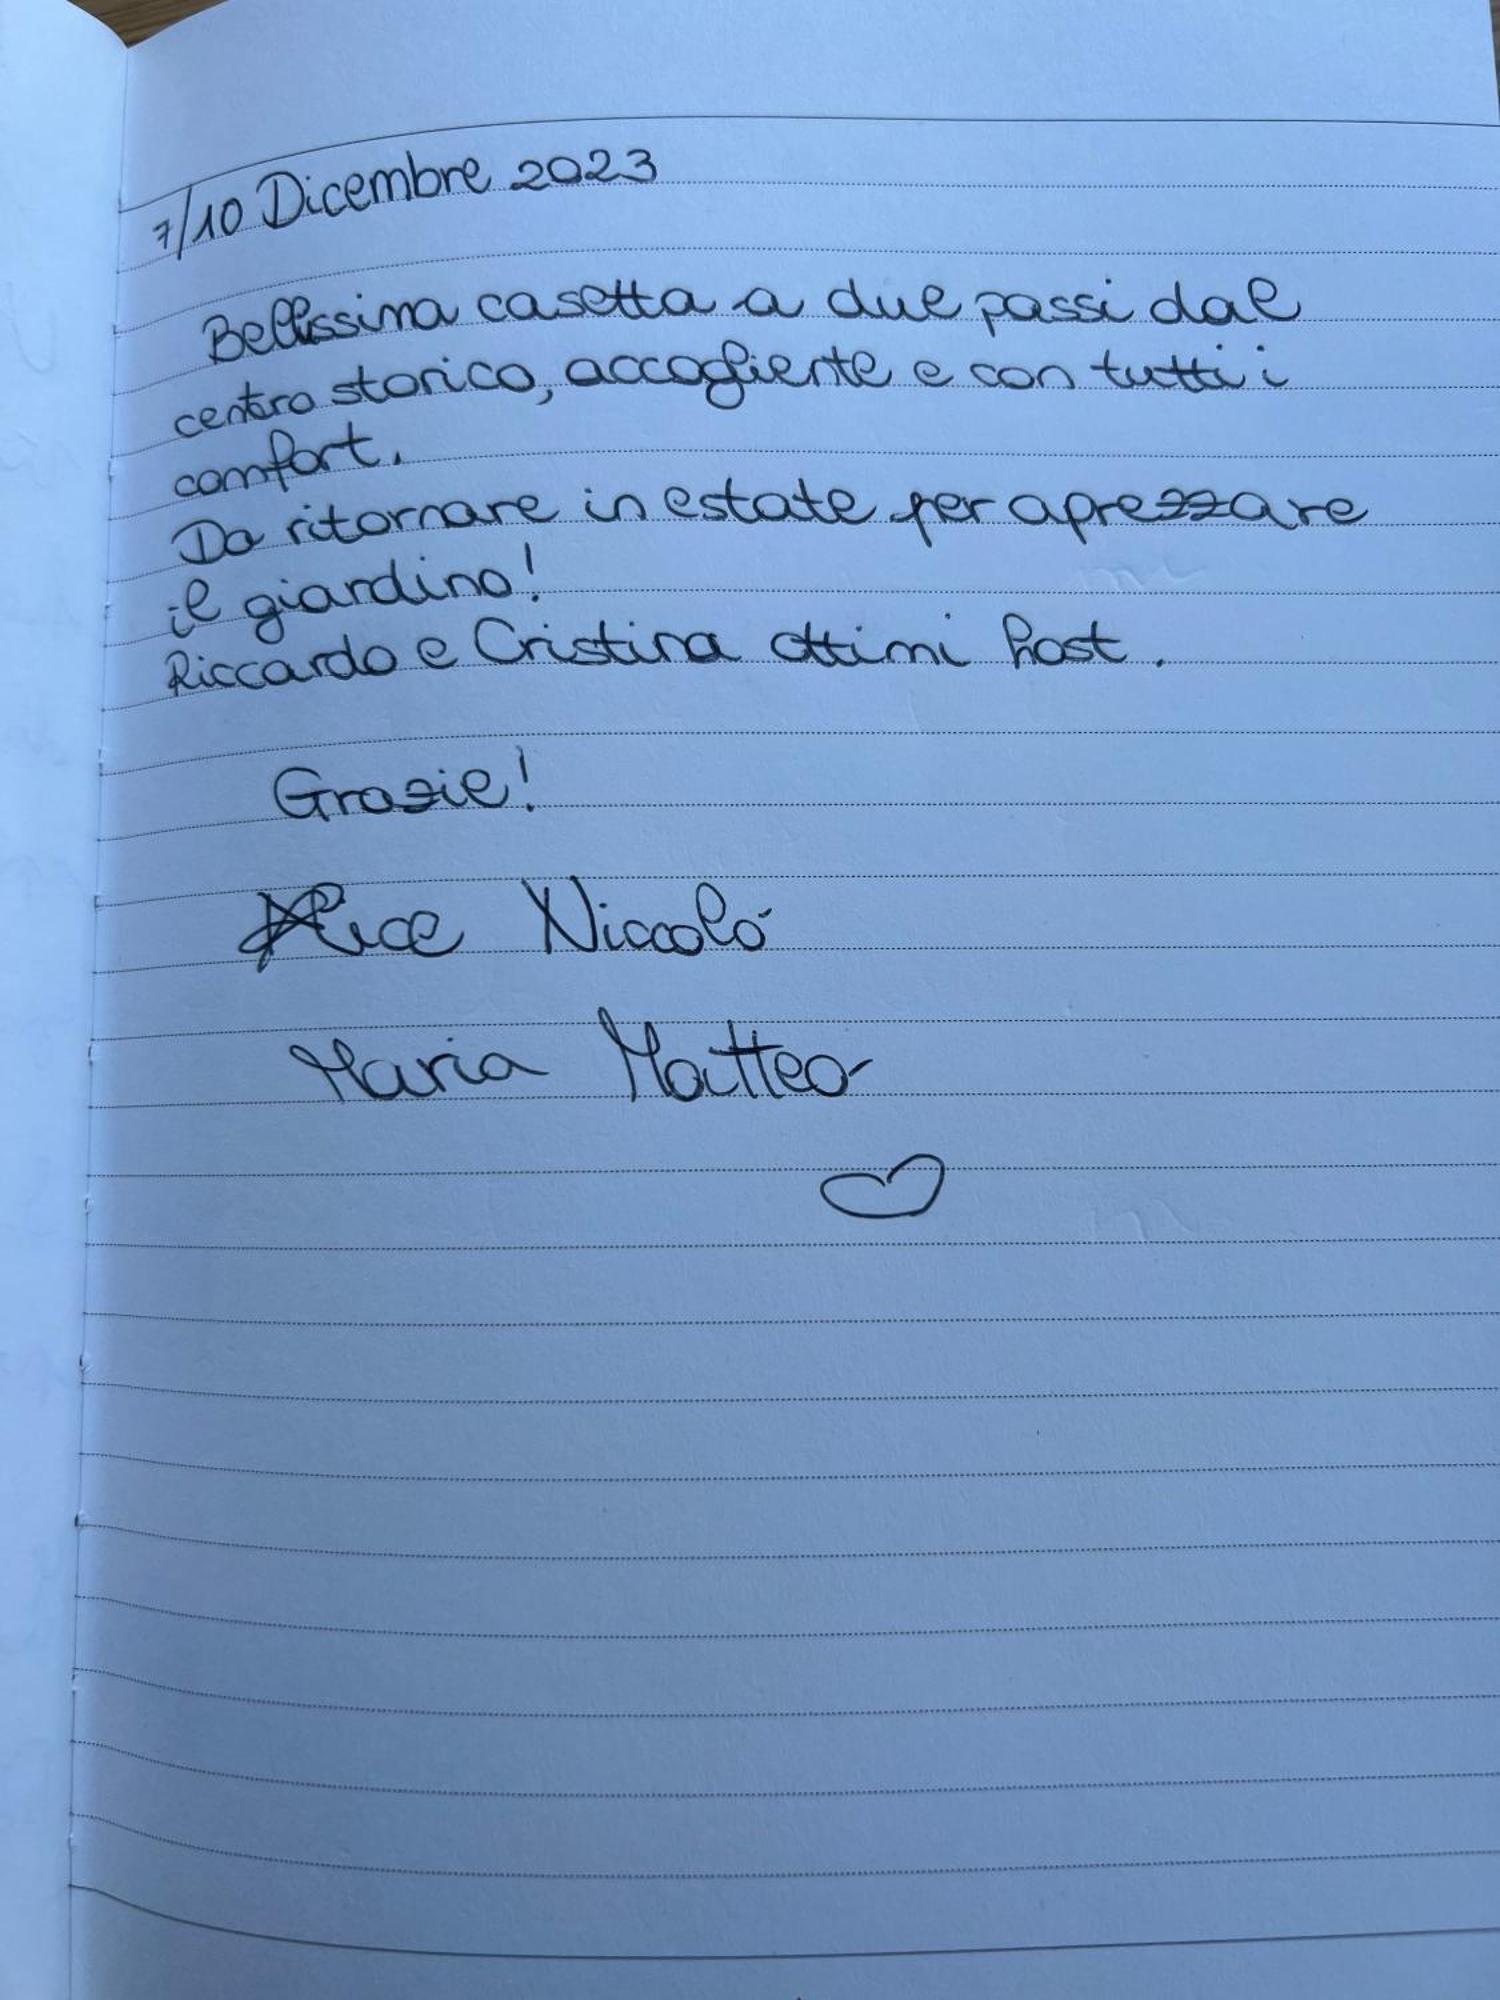 7/10 Dicembre 2023
Bellissima casetta a due passi dal
centro storico, accogliente e con tutti i
comfort.
Da ritornare in estate per aprezzare
il giardino!
Riccardo e Cristina ottimi host.
Grazie!
Alice Niccolò
Maria Matteo